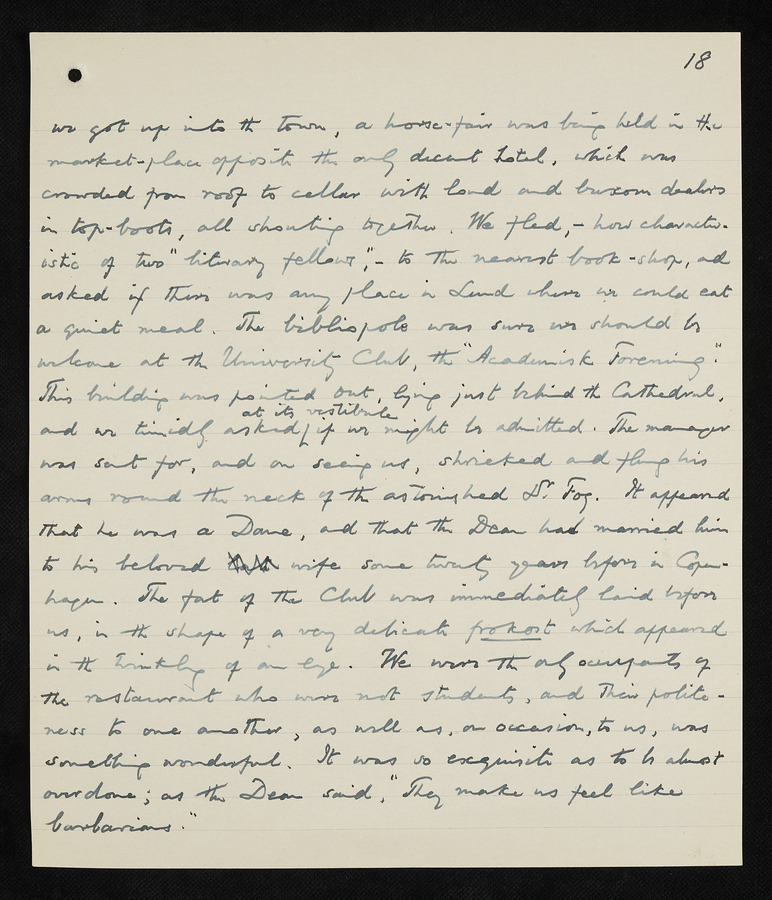 18
we got up into the town, a horse-fair was being held in the
market-place opposite the only decent hotel, which was
crowded from roof to cellar with loud and buxom dealers
in top-boots, all shouting together. We fled, - how character-
istic of two "literary fellows", - to the nearest book-shop, and
asked if there was any place in Lund where we could eat
a quiet meal. The bibliopole was sure we should be
welcome at the University Club, the "Academisk Forening".
This building was pointed out, lying just behind the Cathedral,
at its vestibule
and we timidly asked if we might be admitted. The manager
was sent for, and on seeing us, shrieked and flung his
arms round the neck of the astonished Dr. Fog. It appeared
that he was a Dane, and that the Dean had married him
to his beloved wife some twenty years before in Copen-
hagen. The fat of the Club was immediately laid before
us, in the shape of a very delicate frokost which appeared
in the twinkling of an eye. We were the only occupants of
the restaurant who were not students, and their polite-
ness to one another, as well as, on occasion, to us, was
something wonderful. It was so exquisite as to be almost
overdone; as the Dean said, "They make us feel like
barbarians."